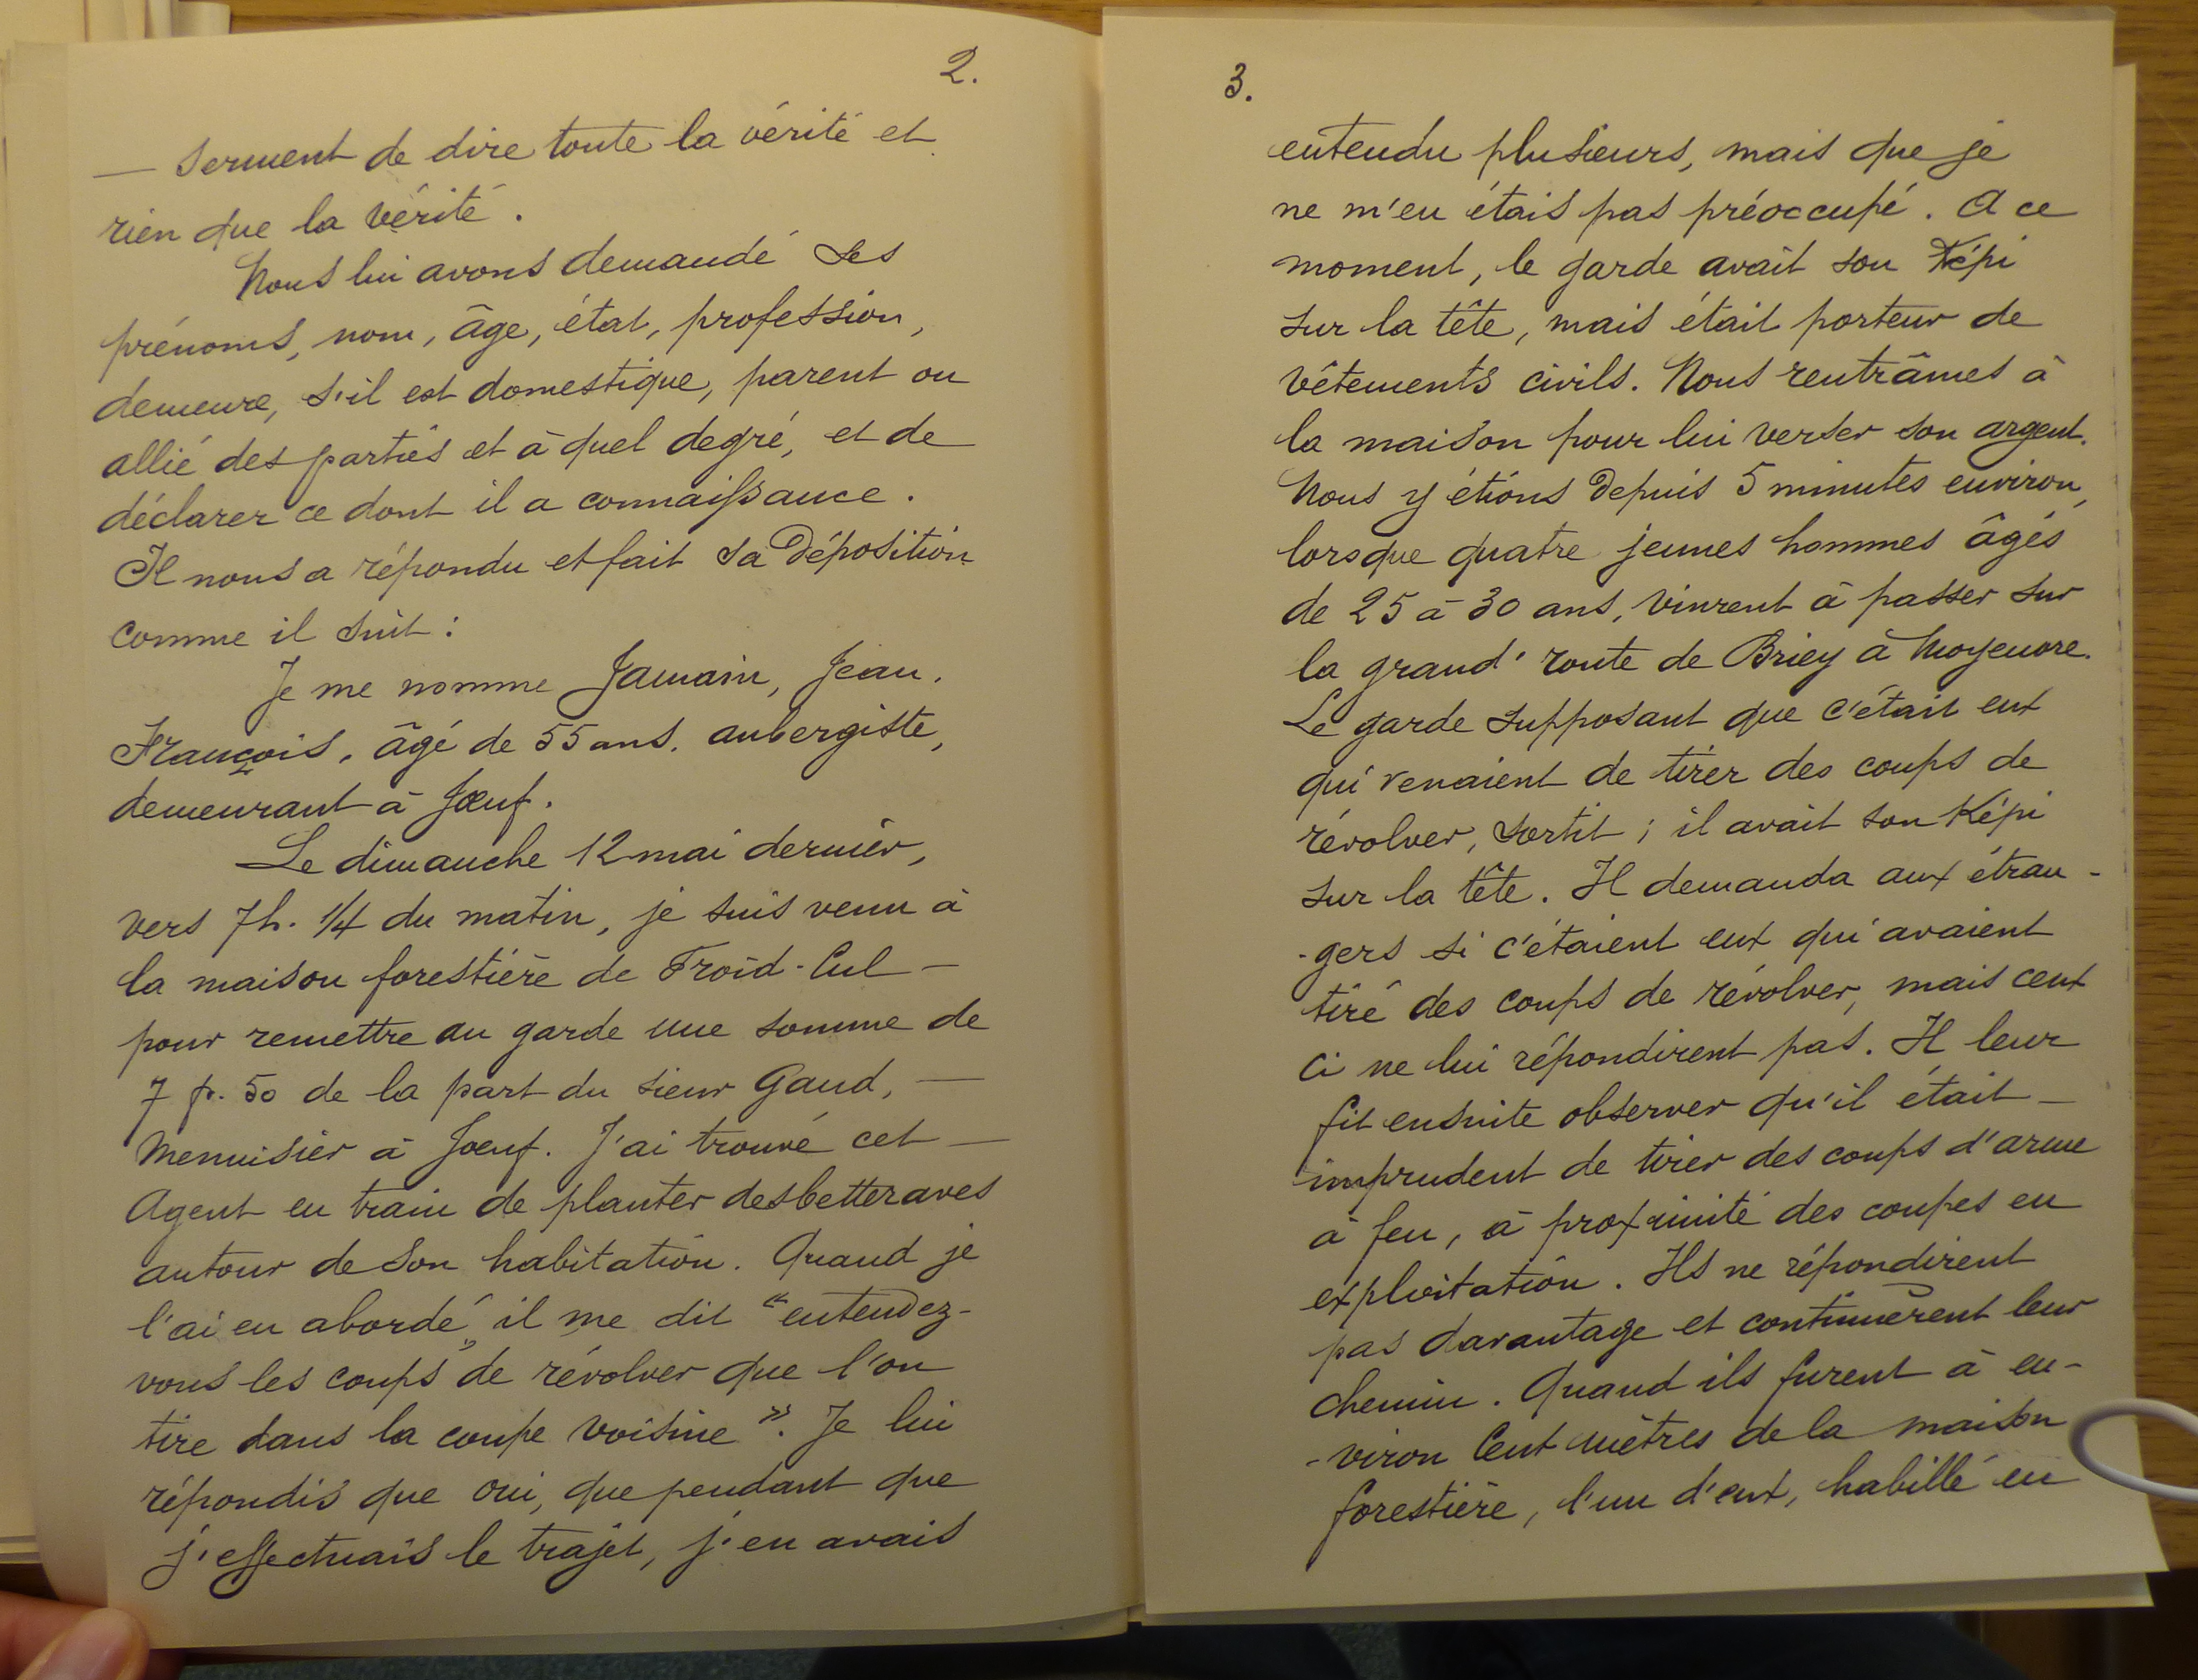 2.
— Serment de dire toute la vérité et
rien que la vérité.
Nous lui avons demandé ses
prénoms, nom, âge, état, profession,
demeure, s'il est domestique, parent ou
allié des parties et à quel degré, et de
déclarer ce dont il a connaissance.
Il nous a répondu et fait sa déposition
comme il suit :
Je me nomme Jamain, Jean.
François, âgé de 55 ans, aubergiste,
demeurant à Jœuf.
Le dimanche 12 mai dernier,
vers 7h. 1/4 du matin, je suis venu à
la maison forestière de Froid-Cul —
pour remettre au garde une somme de
7 fr. 50 de la part du sieur Gand, —
Menuisier à Jœuf. J'ai trouvé cet —
Agent en train de planter des betteraves
autour de son habitation. Quand je
l'ai eu abordé il me dit "entendez-
vous les coups" de révolver que l'on
tire dans la coupe voisine". Je lui
répondis que oui, que pendant que
j'effectuais le trajet, j'en avais
3.
entendu plusieurs, mais que je
ne m'en étais pas préoccupé. A ce
moment, le garde avait son Képi
sur la tête, mais était porteur de
vêtements civils. Nous rentrâmes à
la maison pour lui verser son argent.
Nous y étions depuis 5 minutes environ,
lorsque quatre jeunes hommes âgés
de 25 à 30 ans, vinrent à passer sur
la grand' route de Briey à Moyeuvre.
Le garde supposant que c'était eux
qui venaient de tirer des coups de
révolver, sortit ; il avait son Képi
sur la tête. Il demanda aux étran-
-gers si c'étaient eux qui avaient
tiré des coups de révolver, mais ceux
ci ne lui répondirent pas. Il leur
fit ensuite observer qu'il était —
imprudent de tirer des coups d'arme
à feu, à proximité des coupes en
exploitation. Ils ne répondirent
pas davantage et continuèrent leur
chemin. Quand ils furent à en-
-viron Cent mètres de la maison
forestière, l'un d'eux, habillé en